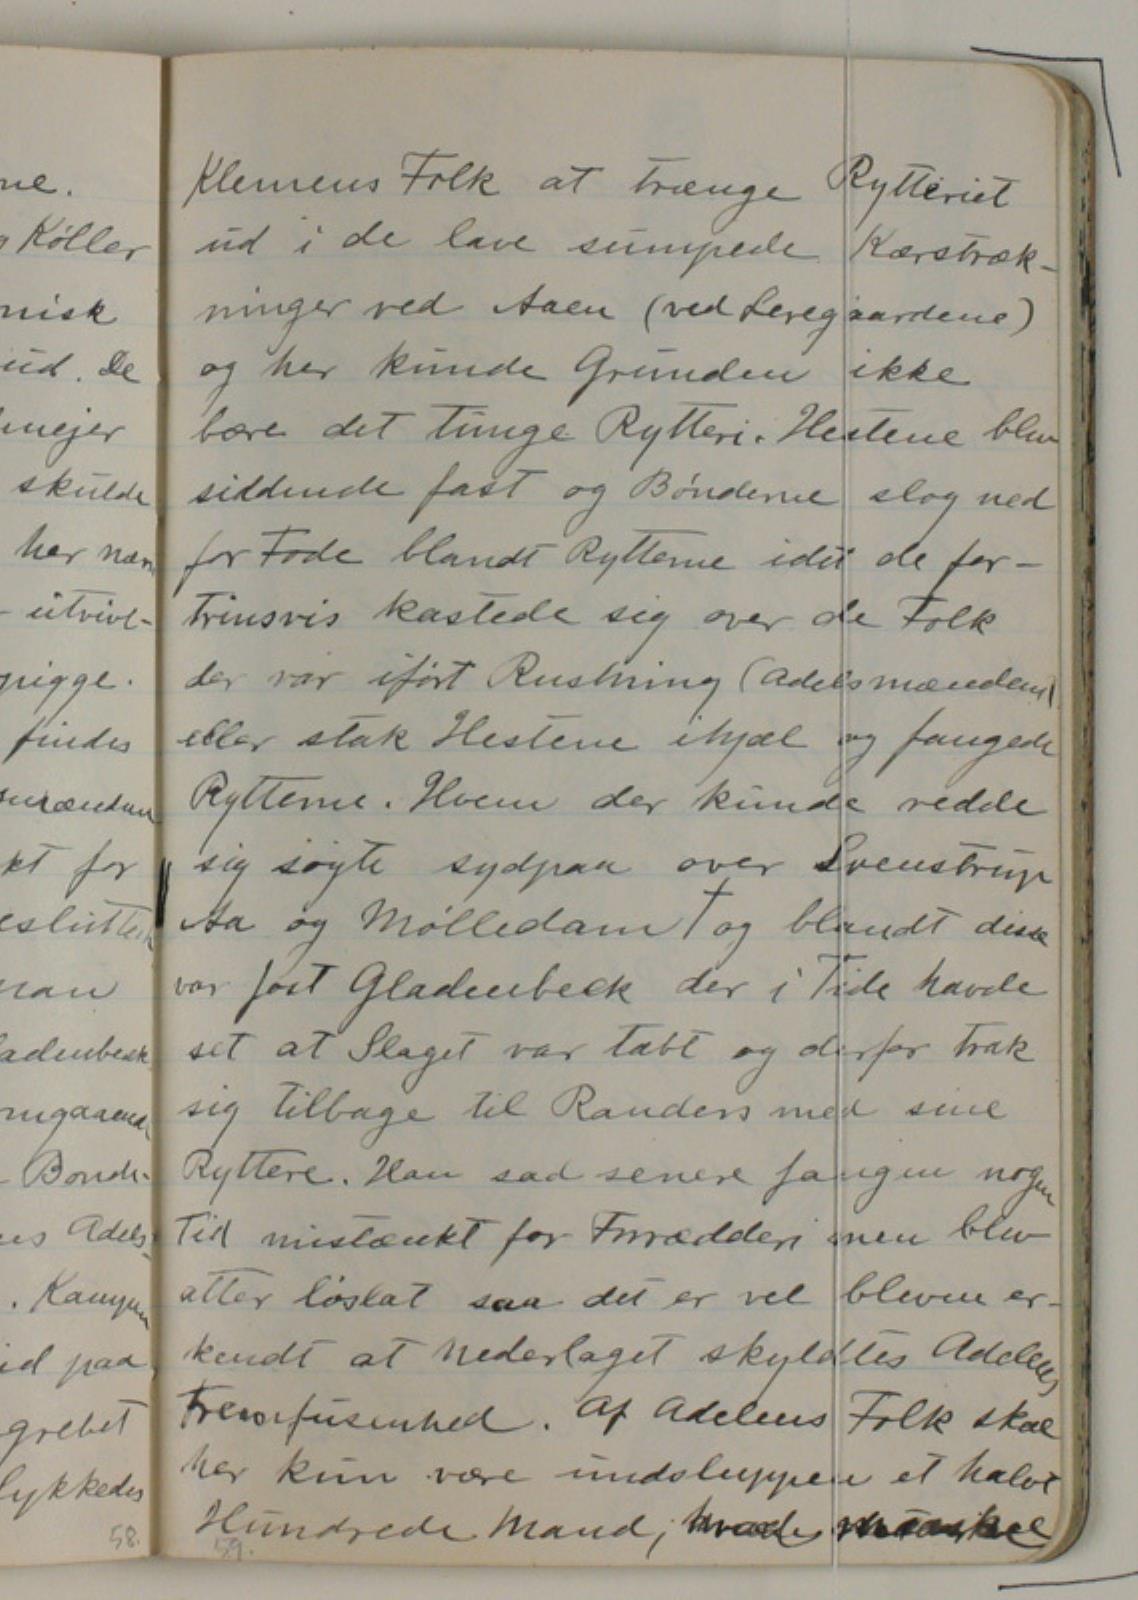 ne.
Køller
nisk
ud. De
mejer
skulde
her næv
utvivl-
pigge.
findes
smændene
kt for
eslutte
nan
ladenbeck
mgaaend
Bonde-
ns Adels-
. Kampen
id paa
grebet
lykkedes
58.
Klemens Folk at trænge Rytteriet
ud i de lave sumpede Kærstræk-
ninger ved Aaen (ved Leregaardene)
og her kunde Grunden ikke
bære det tunge Rytteri. Hestene blev
siddende fast og Bønderne slog ned
for Fode blandt Rytterne idet de for-
trinsvis kastede sig over de Folk
der var iført Rustning (Adelsmændene)
eller stak Hestene ihjæl og fangede
Rytterne. Hvem der kunde redde
sig søgte sydpaa over Svenstrup
Aa og Mølledam † og blandt disse
var Jost Gladenbeck der i Tide havde
set at Slaget var tabt og derfor trak
sig tilbage til Randers med sine
Ryttere. Han sad senere fangen nogen
Tid mistænkt for Forrædderi men blev
atter løslat saa det er vel bleven er-
kendt at Nederlaget skyldtes Adelens
Fremfusenhed. Af Adelens Folk skal
her kun være undsluppen et halvt
Hundrede Mand,
59.